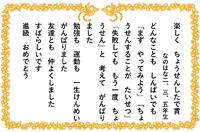 楽しく ちょうせんしたで賞
なのはな 一、三、五年生
どんなことも しんぱいでも
「まずやってみよう」「ちょ
うせんすることが たいせつ」
「失敗しても もう一度 ちょ
うせん」と 考えて がんばり
ました
勉強も 運動も 一生けんめい
がんばりました
友達とも 仲よくしました
すばらしいです
進級 おめでとう